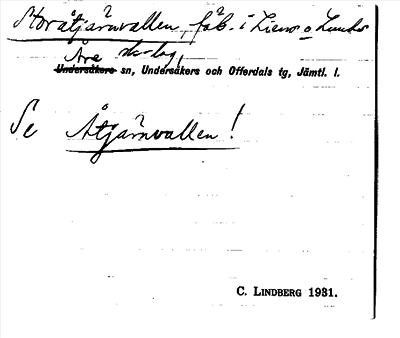 Storåtjärnvallen, fäb. i Lien o
Åre skog,
Undersåkers sn, Undersåkers och Offerdals tg, Jämtl. l.
Se Åtjärnvallen!
C. LINDBERG 1931.